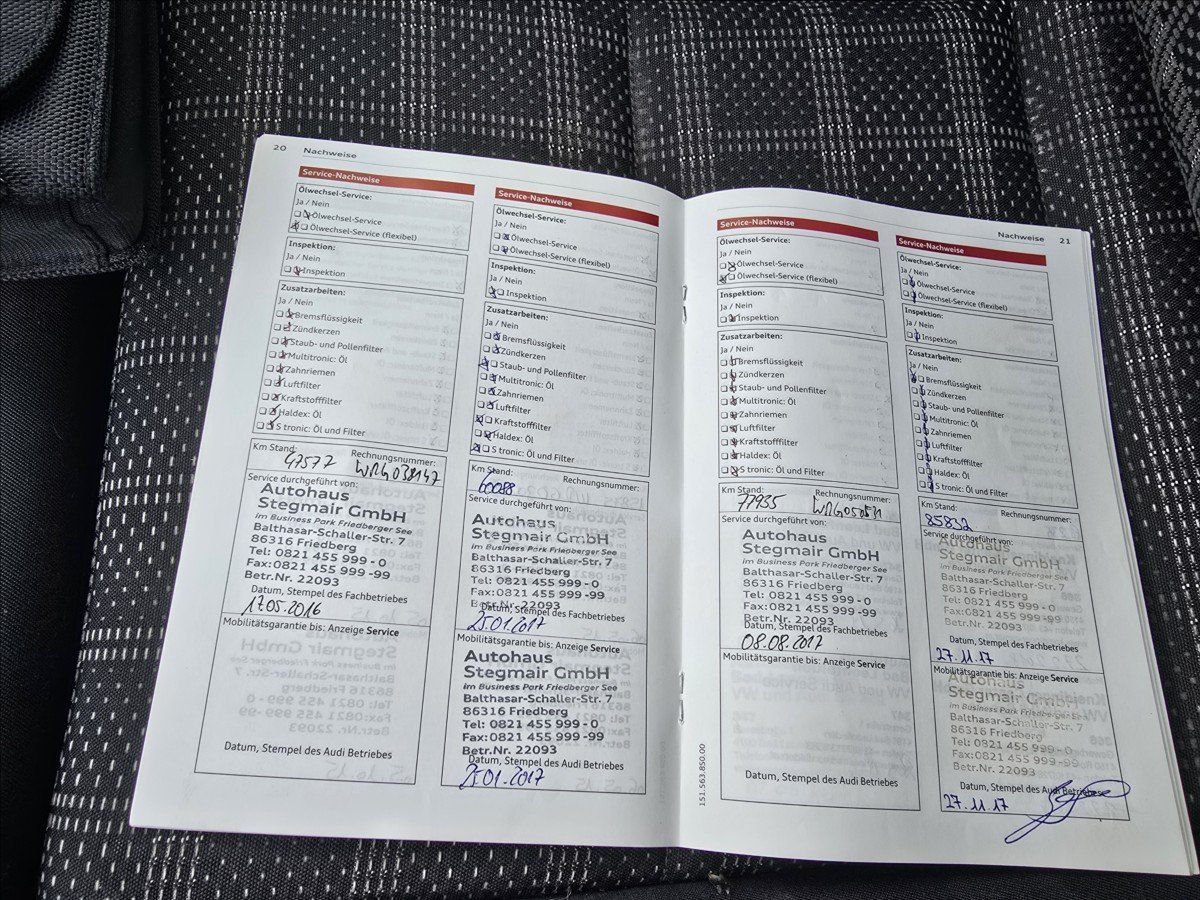 20 Nachweise
Service-Nachweise
Ölwechsel-Service:
Ja / Nein
Ölwechsel-Service
Ölwechsel-Service (flexibel)
Inspektion:
Ja / Nein
Inspektion
Zusatzarbeiten:
Ja / Nein
Bremsflüssigkeit
Zündkerzen
Staub- und Pollenfilter
Multitronic: Öl
Zahnriemen
Luftfilter
Kraftstofffilter
Haldex: Öl
S tronic: Öl und Filter
Km Stand: Rechnungsnummer:
47577
Service durchgeführt von:
Autohaus
Stegmair GmbH
im Business Park Friedberger See
Balthasar-Schaller-Str. 7
86316 Friedberg
Tel: 0821 455 999 - 0
Fax: 0821 455 999 -99
Betr.Nr. 22093
Datum, Stempel des Fachbetriebes
17.05.2016
Mobilitätsgarantie bis: Anzeige Service
Datum, Stempel des Audi Betriebes
Service-Nachweise
Ölwechsel-Service:
Ja / Nein
Ölwechsel-Service
Ölwechsel-Service (flexibel)
Inspektion:
Ja / Nein
Inspektion
Zusatzarbeiten:
Ja / Nein
Bremsflüssigkeit
Zündkerzen
Staub- und Pollenfilter
Multitronic: Öl
Zahnriemen
Luftfilter
Kraftstofffilter
Haldex: Öl
S tronic: Öl und Filter
Km Stand: Rechnungsnummer:
60088
Service durchgeführt von:
Autohaus
Stegmair GmbH
im Business Park Friedberger See
Balthasar-Schaller-Str. 7
86316 Friedberg
Tel: 0821 455 999 - 0
Fax: 0821 455 999 -99
Betr.Nr. 22093
Datum, Stempel des Fachbetriebes
25.01.2017
Mobilitätsgarantie bis: Anzeige Service
Autohaus
Stegmair GmbH
im Business Park Friedberger See
Balthasar-Schaller-Str. 7
86316 Friedberg
Tel: 0821 455 999 - 0
Fax: 0821 455 999 -99
Betr.Nr. 22093
Datum, Stempel des Audi Betriebes
25.01.2017
Nachweise 21
Service-Nachweise
Ölwechsel-Service:
Ja / Nein
Ölwechsel-Service
Ölwechsel-Service (flexibel)
Inspektion:
Ja / Nein
Inspektion
Zusatzarbeiten:
Ja / Nein
Bremsflüssigkeit
Zündkerzen
Staub- und Pollenfilter
Multitronic: Öl
Zahnriemen
Luftfilter
Kraftstofffilter
Haldex: Öl
S tronic: Öl und Filter
Km Stand: Rechnungsnummer:
77935
Service durchgeführt von:
Autohaus
Stegmair GmbH
im Business Park Friedberger See
Balthasar-Schaller-Str. 7
86316 Friedberg
Tel: 0821 455 999 - 0
Fax: 0821 455 999 -99
Betr.Nr. 22093
Datum, Stempel des Fachbetriebes
08.08.2017
Mobilitätsgarantie bis: Anzeige Service
Datum, Stempel des Audi Betriebes
151.563.850.00
Service-Nachweise
Ölwechsel-Service:
Ja / Nein
Ölwechsel-Service
Ölwechsel-Service (flexibel)
Inspektion:
Ja / Nein
Inspektion
Zusatzarbeiten:
Ja / Nein
Bremsflüssigkeit
Zündkerzen
Staub- und Pollenfilter
Multitronic: Öl
Zahnriemen
Luftfilter
Kraftstofffilter
Haldex: Öl
S tronic: Öl und Filter
Km Stand: Rechnungsnummer:
85832
Service durchgeführt von:
Autohaus
Stegmair GmbH
im Business Park Friedberger See
Balthasar-Schaller-Str. 7
86316 Friedberg
Tel: 0821 455 999 - 0
Fax: 0821 455 999 -99
Betr.Nr. 22093
Datum, Stempel des Fachbetriebes
27.11.17
Mobilitätsgarantie bis: Anzeige Service
Autohaus
Stegmair GmbH
im Business Park Friedberger See
Balthasar-Schaller-Str. 7
86316 Friedberg
Tel: 0821 455 999 - 0
Fax: 0821 455 999 -99
Betr.Nr. 22093
Datum, Stempel des Audi Betriebes
27.11.17